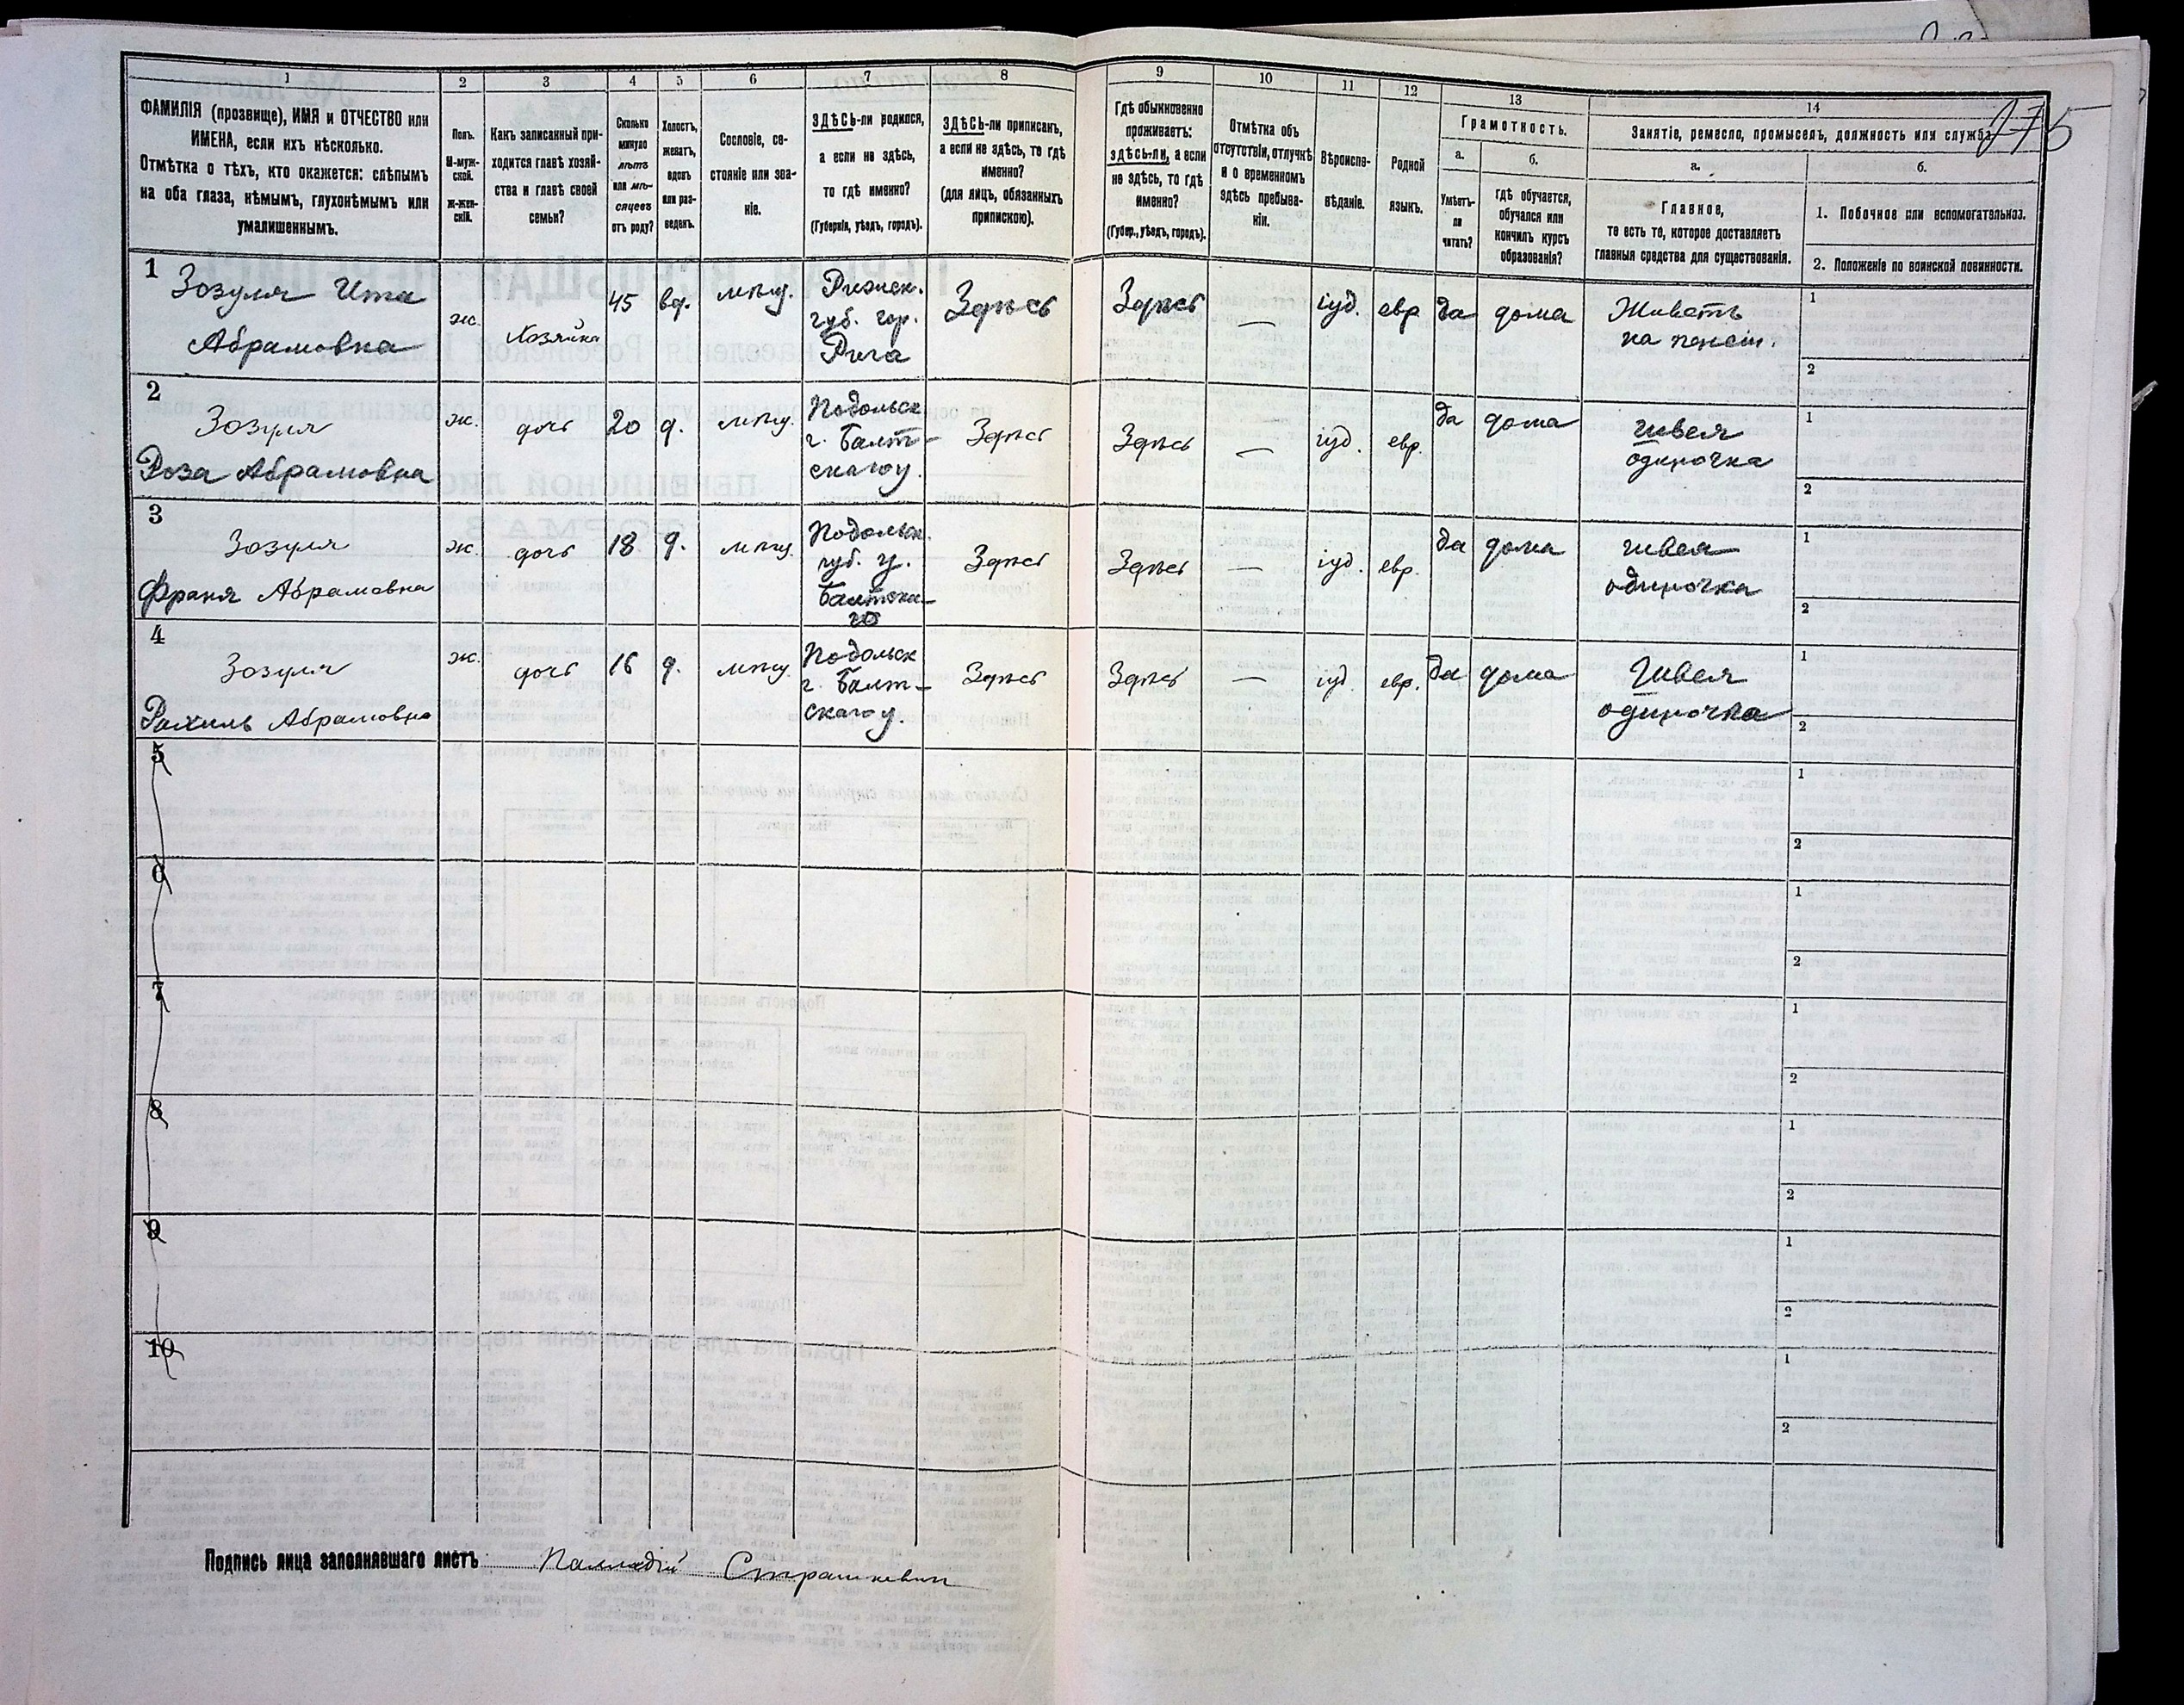 275
1
2
3
4
5
6
7
8
9
10
11
12
13
14
ФАМИЛІЯ (прозвище), ИМЯ и ОТЧЕСТВО или
ИМЕНА, если ихъ нѣсколько.
Отмѣтка о тѣхъ, кто окажется: слѣпымъ
на оба глаза, нѣмымъ, глухонѣмымъ или
умалишеннымъ.
Полъ.
М-муж-
ской.
Ж-жен-
скій.
Какъ записанный при-
ходится главѣ хозяй-
ства и главѣ своей
семьи?
Сколько
минуло
лѣтъ
или мѣ-
сяцевъ
отъ роду?
Холостъ,
женатъ,
вдовъ
или раз-
веденъ.
Сословіе, со-
стояніе или зва-
ніе.
ЗДѢСЬ-ли родился,
а если не здѣсь,
то гдѣ именно?
(Губернія, уѣздъ, городъ).
ЗДѢСЬ-ли приписанъ,
а если не здѣсь, то гдѣ
именно?
(для лицъ, обязанныхъ
припискою).
Гдѣ обыкновенно
проживаетъ:
здѣсь-ли, а если
не здѣсь, то гдѣ
именно?
(Губер., уѣздъ, городъ).
Отмѣтка объ
отсутствіи, отлучкѣ
и о временномъ
здѣсь пребыва-
ніи.
Вѣроиспо-
вѣданіе.
Родной
языкъ.
Грамотность.
а.
Умѣетъ-
ли
читать?
б.
гдѣ обучается,
обучался или
кончилъ курсъ
образованія?
Занятіе, ремесло, промыселъ, должность или служба
а.
Главное,
то есть то, которое доставляетъ
главныя средства для существованія.
б.
1. Побочное или вспомогательное.
2. Положеніе по воинской повинности.
1
Зозуля Ита
Абрамовна
ж.
Хозяйка
45
вд.
мѣщ.
Рижск.
губ. гор.
Рига
Здѣсь
Здѣсь
—
іуд.
евр
да
дома
Живетъ
на
1
2
2
Зозуля
Роза Абрамовна
ж.
дочь
20
д.
мѣщ.
Подольск
г. Балт-
скаго у.
Здѣсь
Здѣсь
—
іуд.
евр.
да
дома
швея
одиночка
1
2
3
Зозуля
Франя Абрамовна
ж.
дочь
18
д.
мѣщ.
Подольск.
губ. у.
Балтска-
го
Здѣсь
Здѣсь
—
іуд.
евр.
да
дома
швея
одиночка
1
2
4
Зозуля
Рахиль Абрамовна
ж.
дочь
16
д.
мѣщ
Подольск
г. Балт-
скаго у.
Здѣсь
Здѣсь
—
іуд.
евр.
да
дома
Швея
одиночка
1
2
5
1
2
6
1
2
7
1
2
8
1
2
9
1
2
10
1
2
Подпись лица заполнявшаго листъ Палладій Страшкевич